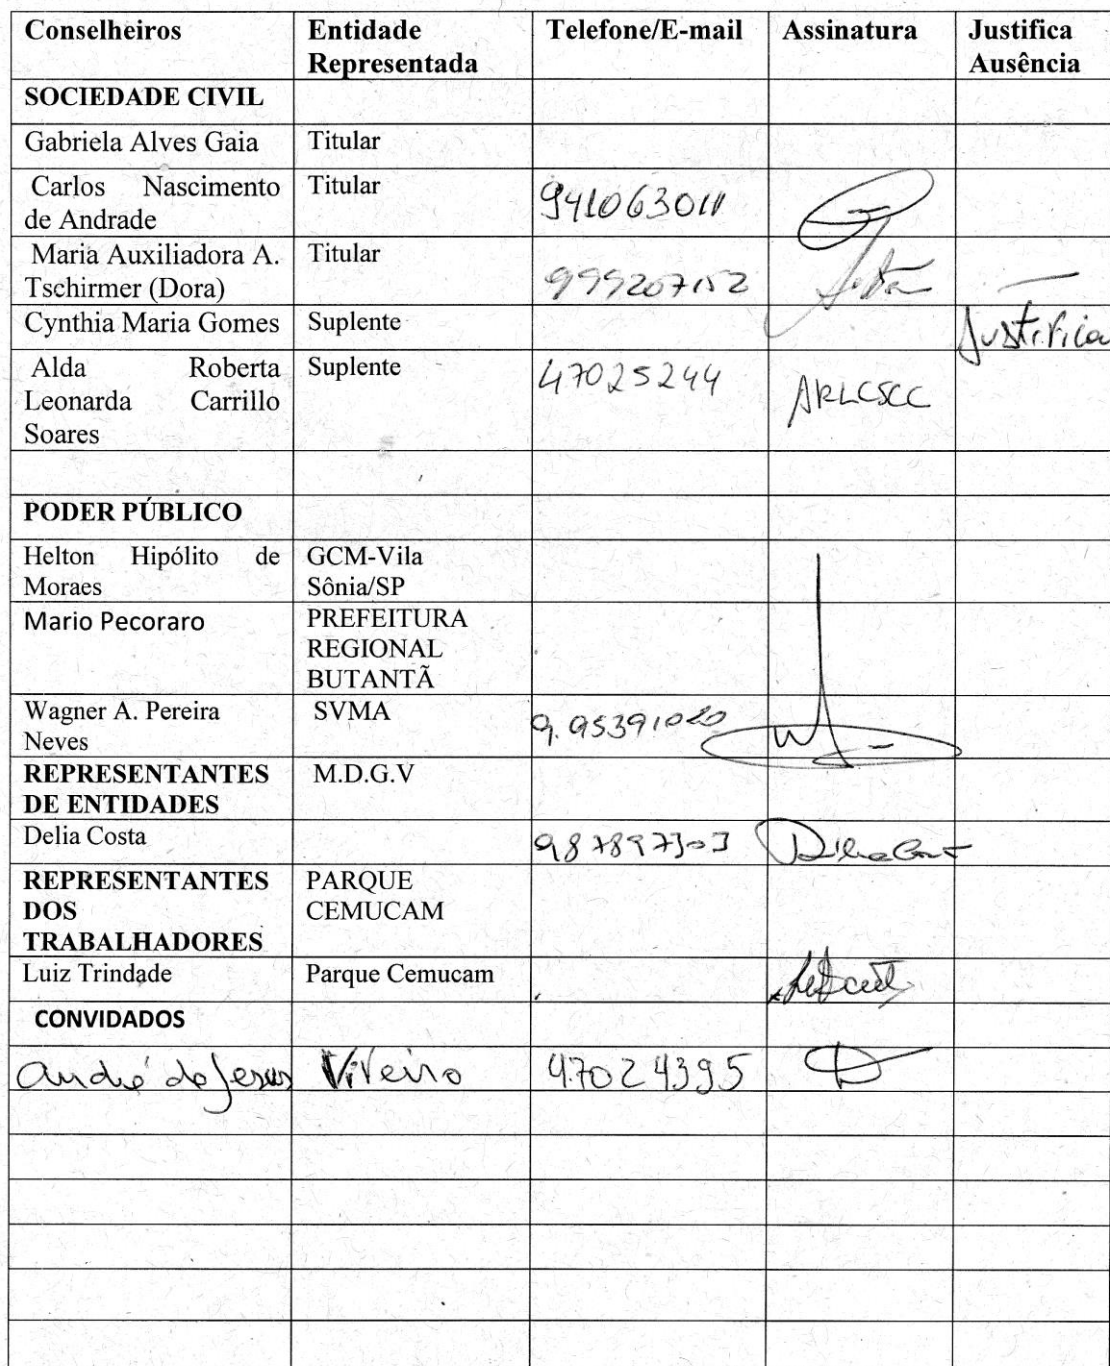 Conselheiros Entidade Representada Telefone/E-mail Assinatura Justifica Ausência
SOCIEDADE CIVIL
Gabriela Alves Gaia Titular
Carlos Nascimento de Andrade Titular 941063011
Maria Auxiliadora A. Tschirmer (Dora) Titular 999207152
Cynthia Maria Gomes Suplente Justifica
Alda Roberta Leonarda Carrillo Soares Suplente 47025244 ARLCSCC
PODER PÚBLICO
Helton Hipólito de Moraes GCM-Vila Sônia/SP
Mario Pecoraro PREFEITURA REGIONAL BUTANTÃ
Wagner A. Pereira Neves SVMA 9.95391020
REPRESENTANTES DE ENTIDADES M.D.G.V
Delia Costa 987897303
REPRESENTANTES DOS TRABALHADORES PARQUE CEMUCAM
Luiz Trindade Parque Cemucam
CONVIDADOS
André de Jesus Viveiro 47024395